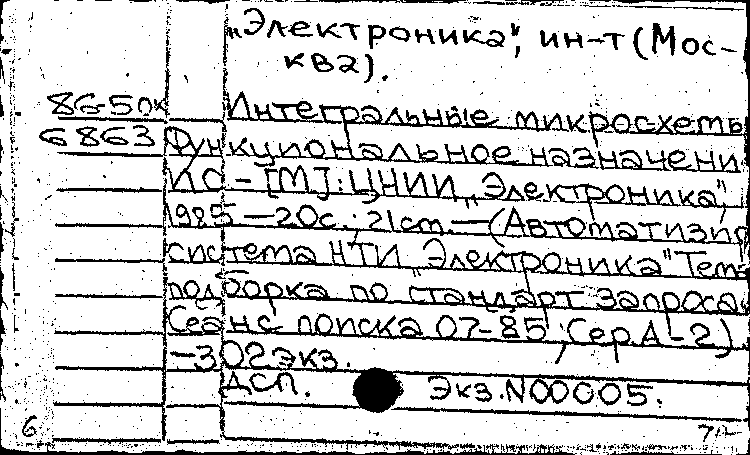 „Электроника", ин-т (Мос-
ква).
86-50к Интегральные микросхемы
6863 Функциональное назначени
ИС - [М]: ЦНИИ „Электроника",
1985 — 20с.; 21см. — (Автоматизир
система НТИ „Электроника" Тем
подборка по стандарт запроса
Сеанс поиска 07-85, Сер.А-2).
— 302экз.
ДСП. Экз.N00005.
6